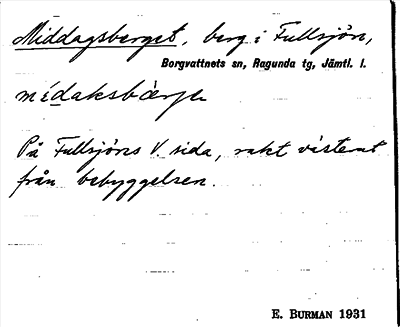 Middagsberget, berg i Fullsjön,
Borgvattnets sn, Ragunda tg, Jämtl. l.
På Fullsjöns V. sida, rakt västerut
från bebyggelsen.
E. BURMAN 1931